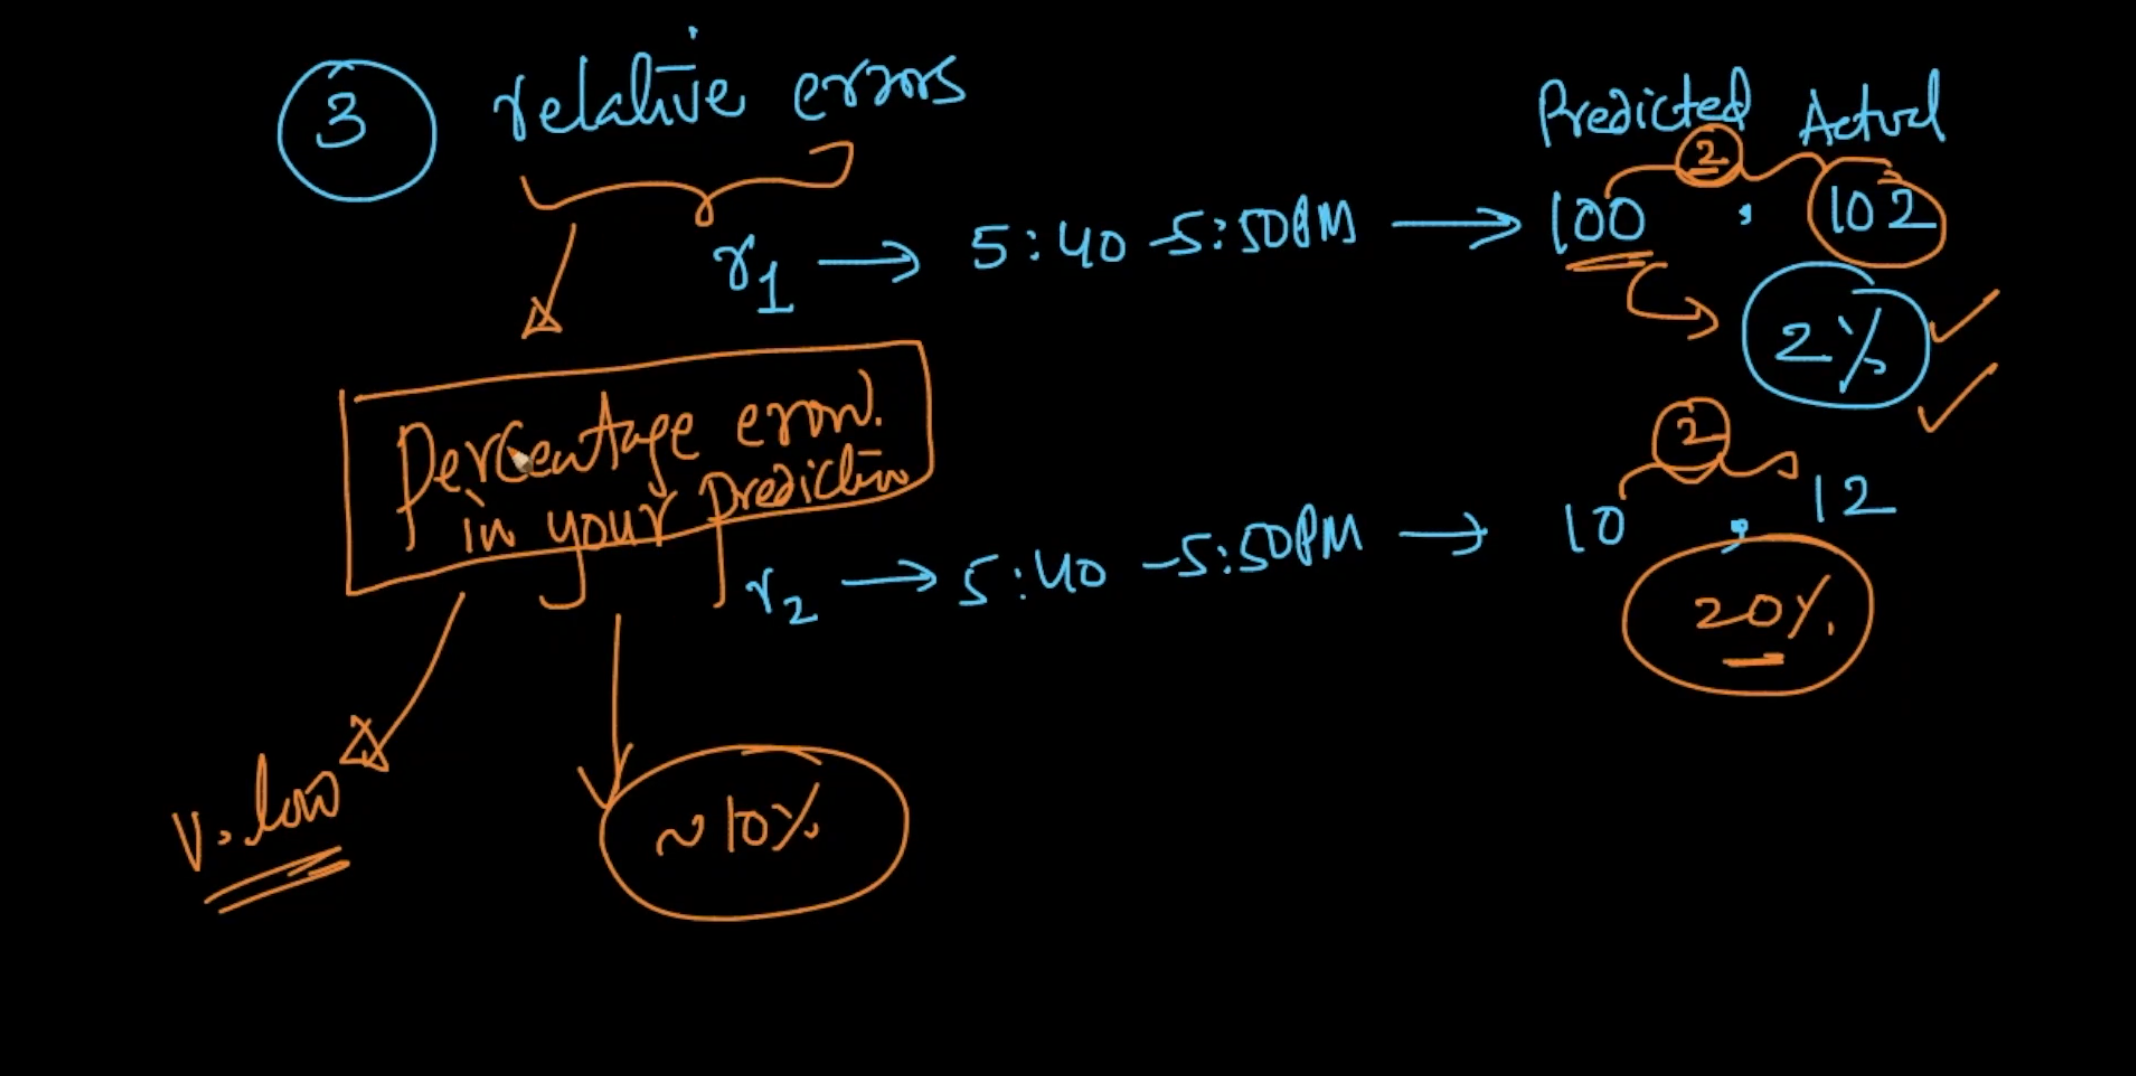 3 relative errors
Predicted Actual
2
r1 → 5:40 - 5:50PM → 100 , 102
2%
Percentage error.
in your prediction
2
r2 → 5:40 - 5:50PM → 10 , 12
20%.
v. low
~10%